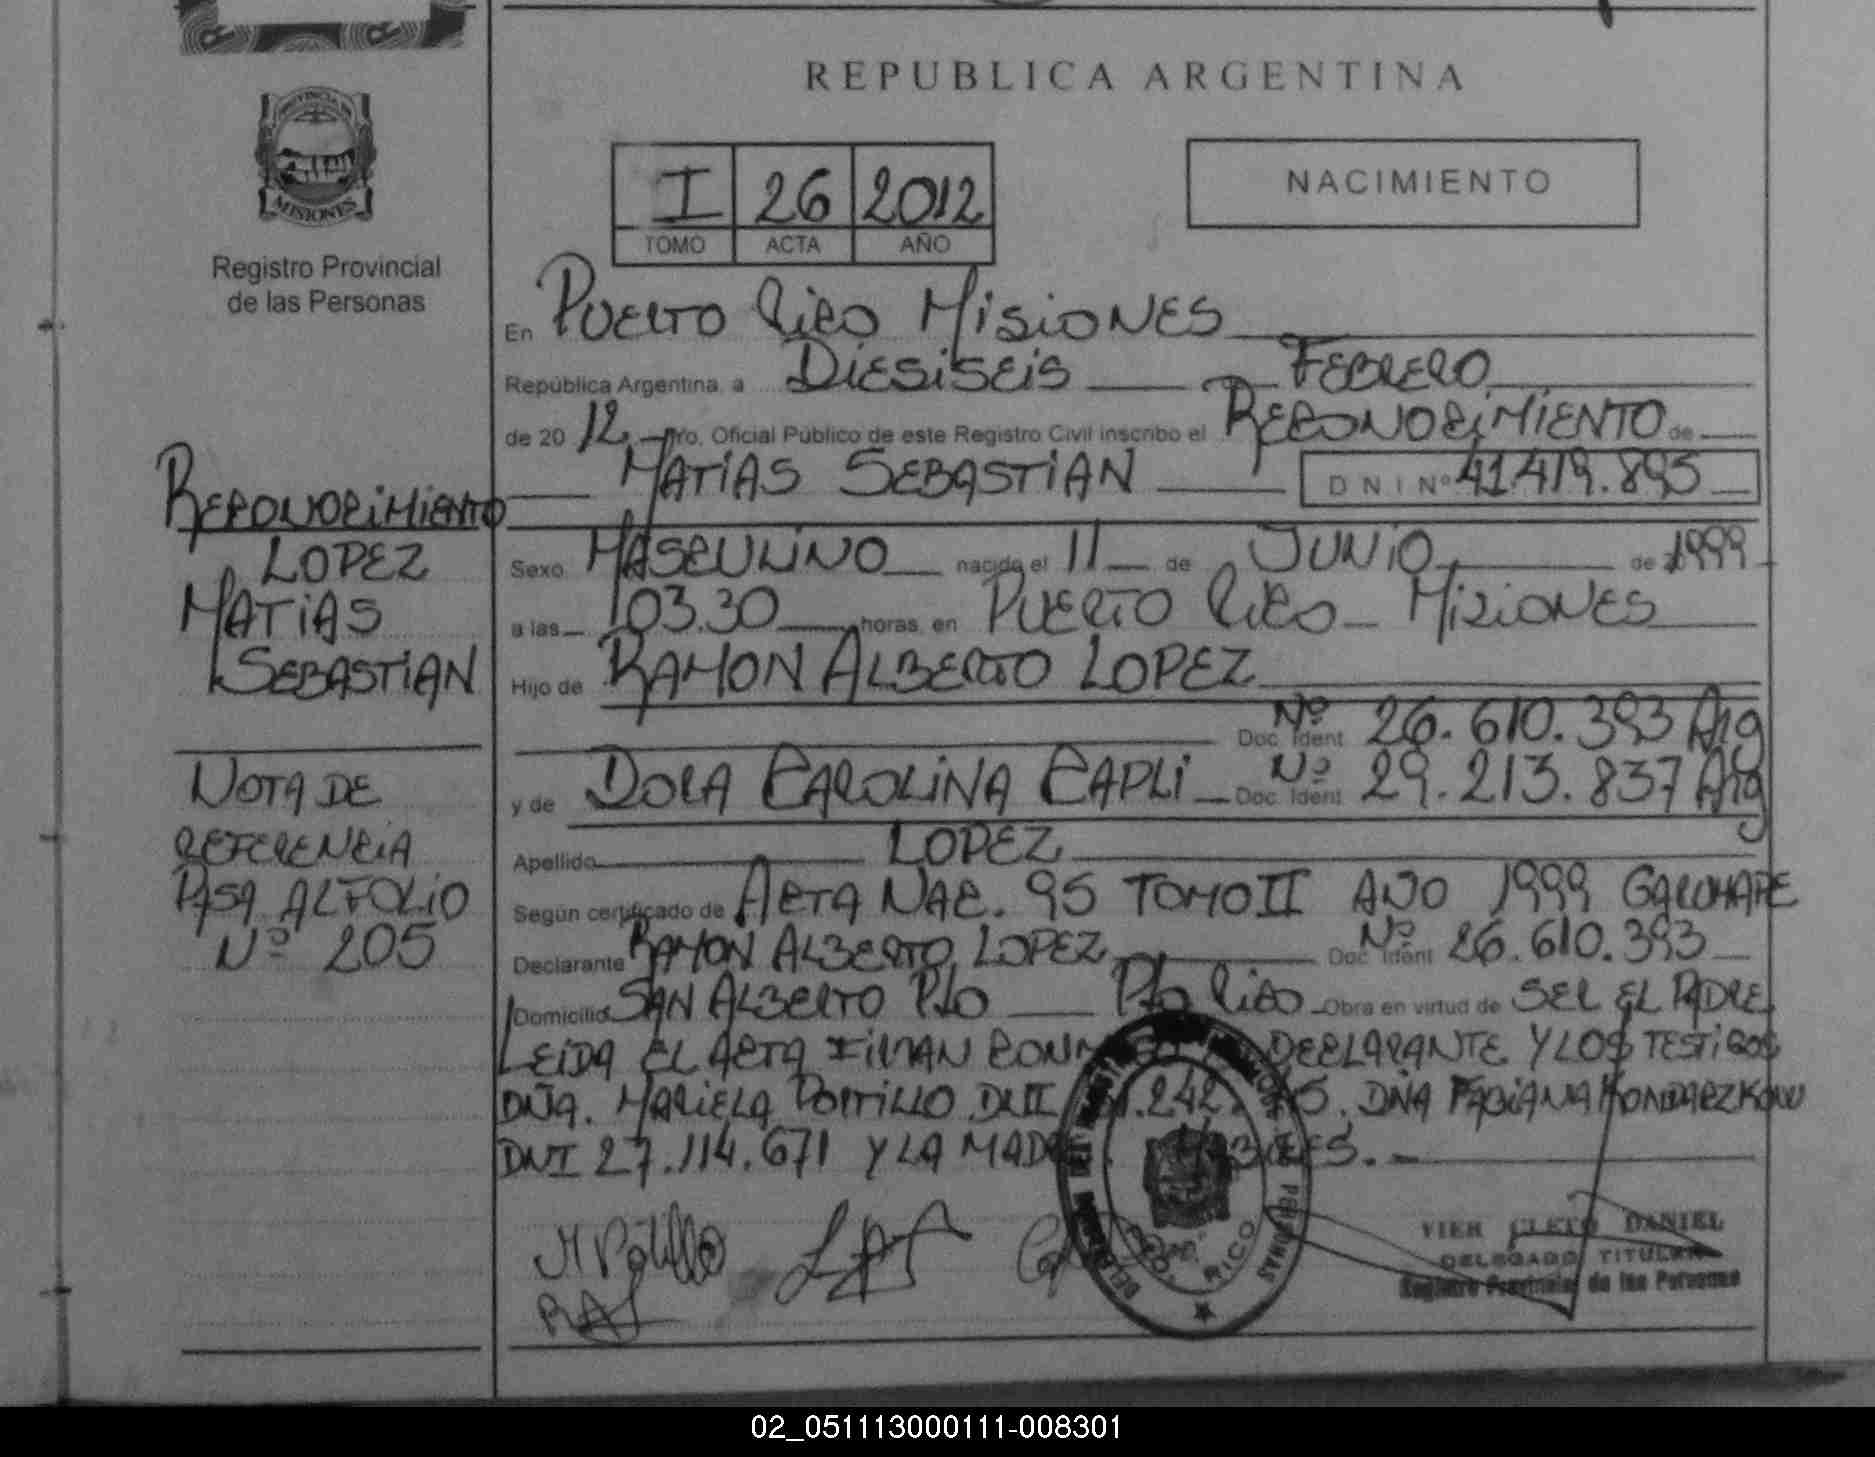 REPUBLICA ARGENTINA
PROVINCIA DE
MISIONES
Registro Provincial
de las Personas
I 26 2012
TOMO ACTA AÑO
NACIMIENTO
En PUERTO RICO MISIONES
República Argentina, a DIESISEIS FEBRERO
de 2012 Yo, Oficial Público de este Registro Civil inscribo el RECONOCIMIENTO de
MATIAS SEBASTIAN D N I Nº 41.419.895
Sexo MASCULINO nacido el 11 de JUNIO de 1999
a las 03.30 horas, en PUERTO RICO MISIONES
Hijo de RAMON ALBERTO LOPEZ
Doc. Ident Nº 26.610.393 Arg
y de DORA CAROLINA CAPLI Doc. Ident Nº 29.213.837 Arg
Apellido LOPEZ
Según certificado de ACTA NAC. 95 TOMO II AÑO 1999 GARUHAPE
Declarante RAMON ALBERTO LOPEZ Doc. Ident Nº 26.610.393
Domicilio SAN ALBERTO Pto Pto RICO Obra en virtud de SER EL PADRE
LEIDA EL ACTA FIRMAN DECLARANTE Y LOS TESTIGOS
DÑA. MARIELA PORTILLO DNI .242. DÑA FABIANA
DNI 27.114.671 Y LA MADRE
RECONOCIMIENTO
LOPEZ
MATIAS
SEBASTIAN
NOTA DE
REFERENCIA
PASA AL FOLIO
Nº 205
M Portillo
RAL
PTO. RICO
VIER CLETO DANIEL
DELEGADO TITULAR
Registro Provincial de las Personas
02_051113000111-008301